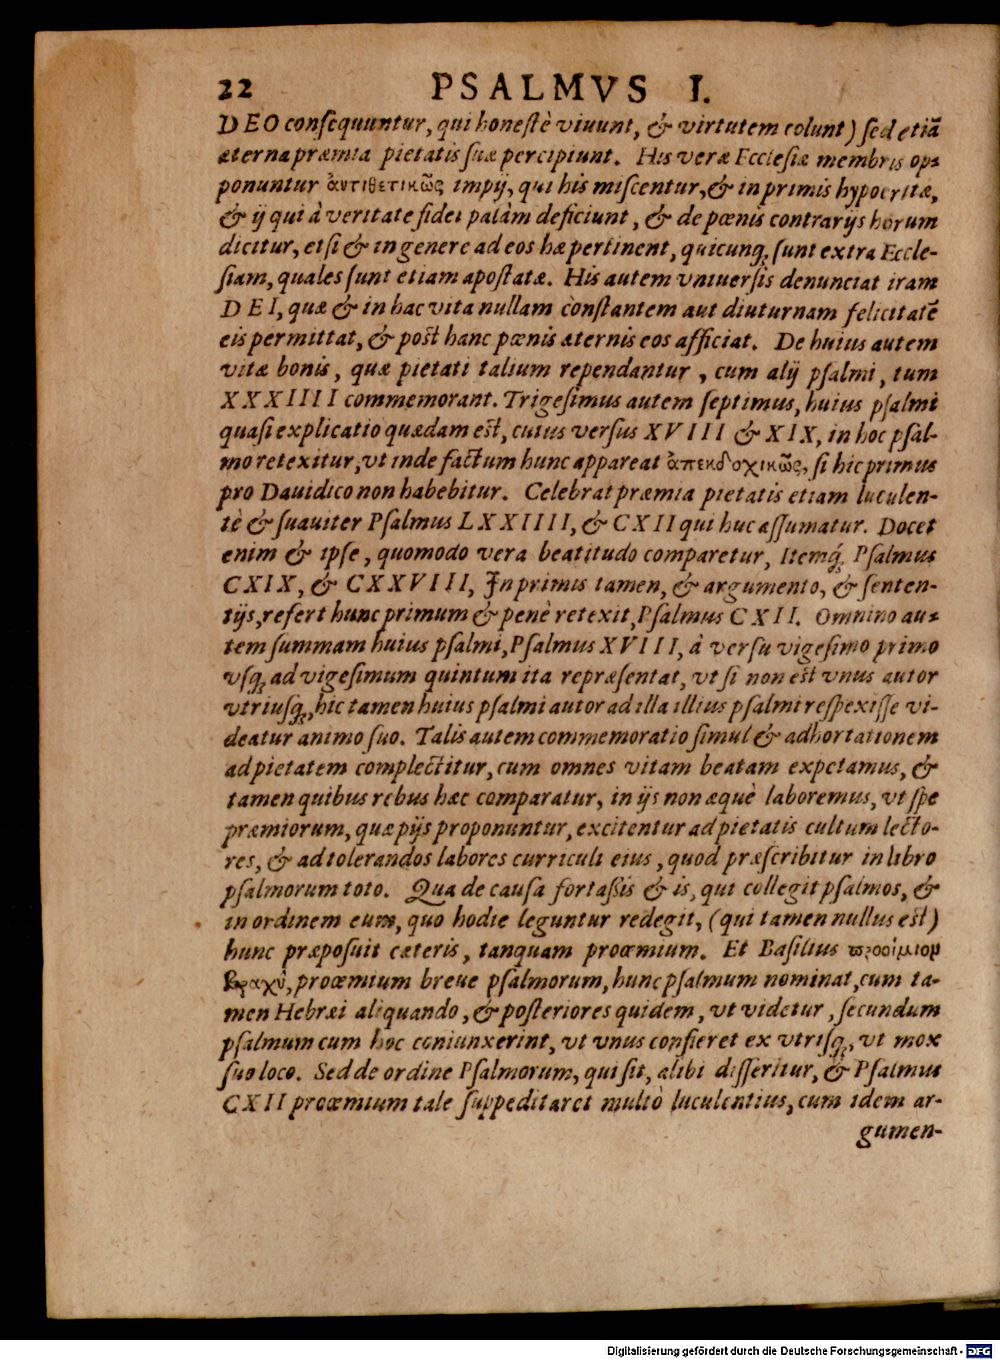 22 PSALMVS I.
DEO conſequuntur, qui honeſtè viuunt, & virtutem colunt) ſed etiã
æterna præmia pietatis ſuæ percipiunt. His veræ Eccleſiæ membris op⸗
ponuntur ἀντιθετικῶς impij, qui his miſcentur, & in primis hypocritæ,
& ij qui à veritate fidei palàm deficiunt, & de pœnis contrarijs horum
dicitur, etſi & in genere ad eos hæ pertinent, quicunq́; ſunt extra Eccle-
ſiam, quales ſunt etiam apoſtatæ. His autem vniuerſis denunciat iram
DEI, quæ & in hac vita nullam conſtantem aut diuturnam felicitatẽ
eis permittat, & poſt hanc pœnis æternis eos afficiat. De huius autem
vitæ bonis, quæ pietati talium rependantur, cum alij pſalmi, tum
XXXIIII commemorant. Trigeſimus autem ſeptimus, huius pſalmi
quaſi explicatio quædam eſt, cuius verſus XVIII & XIX, in hoc pſal-
mo retexitur, vt inde factum hunc appareat ἀπεκδοχικῶς, ſi hic primus
pro Dauidico non habebitur. Celebrat præmia pietatis etiam luculen-
tè & ſuauiter Pſalmus LXXIIII, & CXII qui huc aſſumatur. Docet
enim & ipſe, quomodo vera beatitudo comparetur, Itemq́; Pſalmus
CXIX, & CXXVIII, In primis tamen, & argumento, & ſenten-
tijs, refert hunc primum & penè retexit, Pſalmus CXII. Omnino au⸗
tem ſummam huius pſalmi, Pſalmus XVIII, à verſu vigeſimo primo
vſq; ad vigeſimum quintum ita repræſentat, vt ſi non eſt vnus autor
vtriuſq;, hic tamen huius pſalmi autor ad illa illius pſalmi reſpexiſſe vi-
deatur animo ſuo. Talis autem commemoratio ſimul & adhortationem
ad pietatem complectitur, cum omnes vitam beatam expetamus, &
tamen quibus rebus hæc comparatur, in ijs non æquè laboremus, vt ſpe
præmiorum, quæ pijs proponuntur, excitentur ad pietatis cultum lecto-
res, & ad tolerandos labores curriculi eius, quod præſcribitur in libro
pſalmorum toto. Qua de cauſa fortaßis & is, qui collegit pſalmos, &
in ordinem eum, quo hodie leguntur redegit, (qui tamen nullus eſt)
hunc præpoſuit cæteris, tanquam proœmium. Et Baſilius προοίμιον
βραχὺ, proœmium breue pſalmorum, hunc pſalmum nominat, cum ta-
men Hebræi aliquando, & poſteriores quidem, vt videtur, ſecundum
pſalmum cum hoc coniunxerint, vt vnus confieret ex vtriſq;, vt mox
ſuo loco. Sed de ordine Pſalmorum, qui ſit, alibi diſſeritur, & Pſalmus
CXII proœmium tale ſuppeditaret multò luculentius, cum idem ar-
gumen-
Digitalisierung gefördert durch die Deutsche Forschungsgemeinschaft - DFG